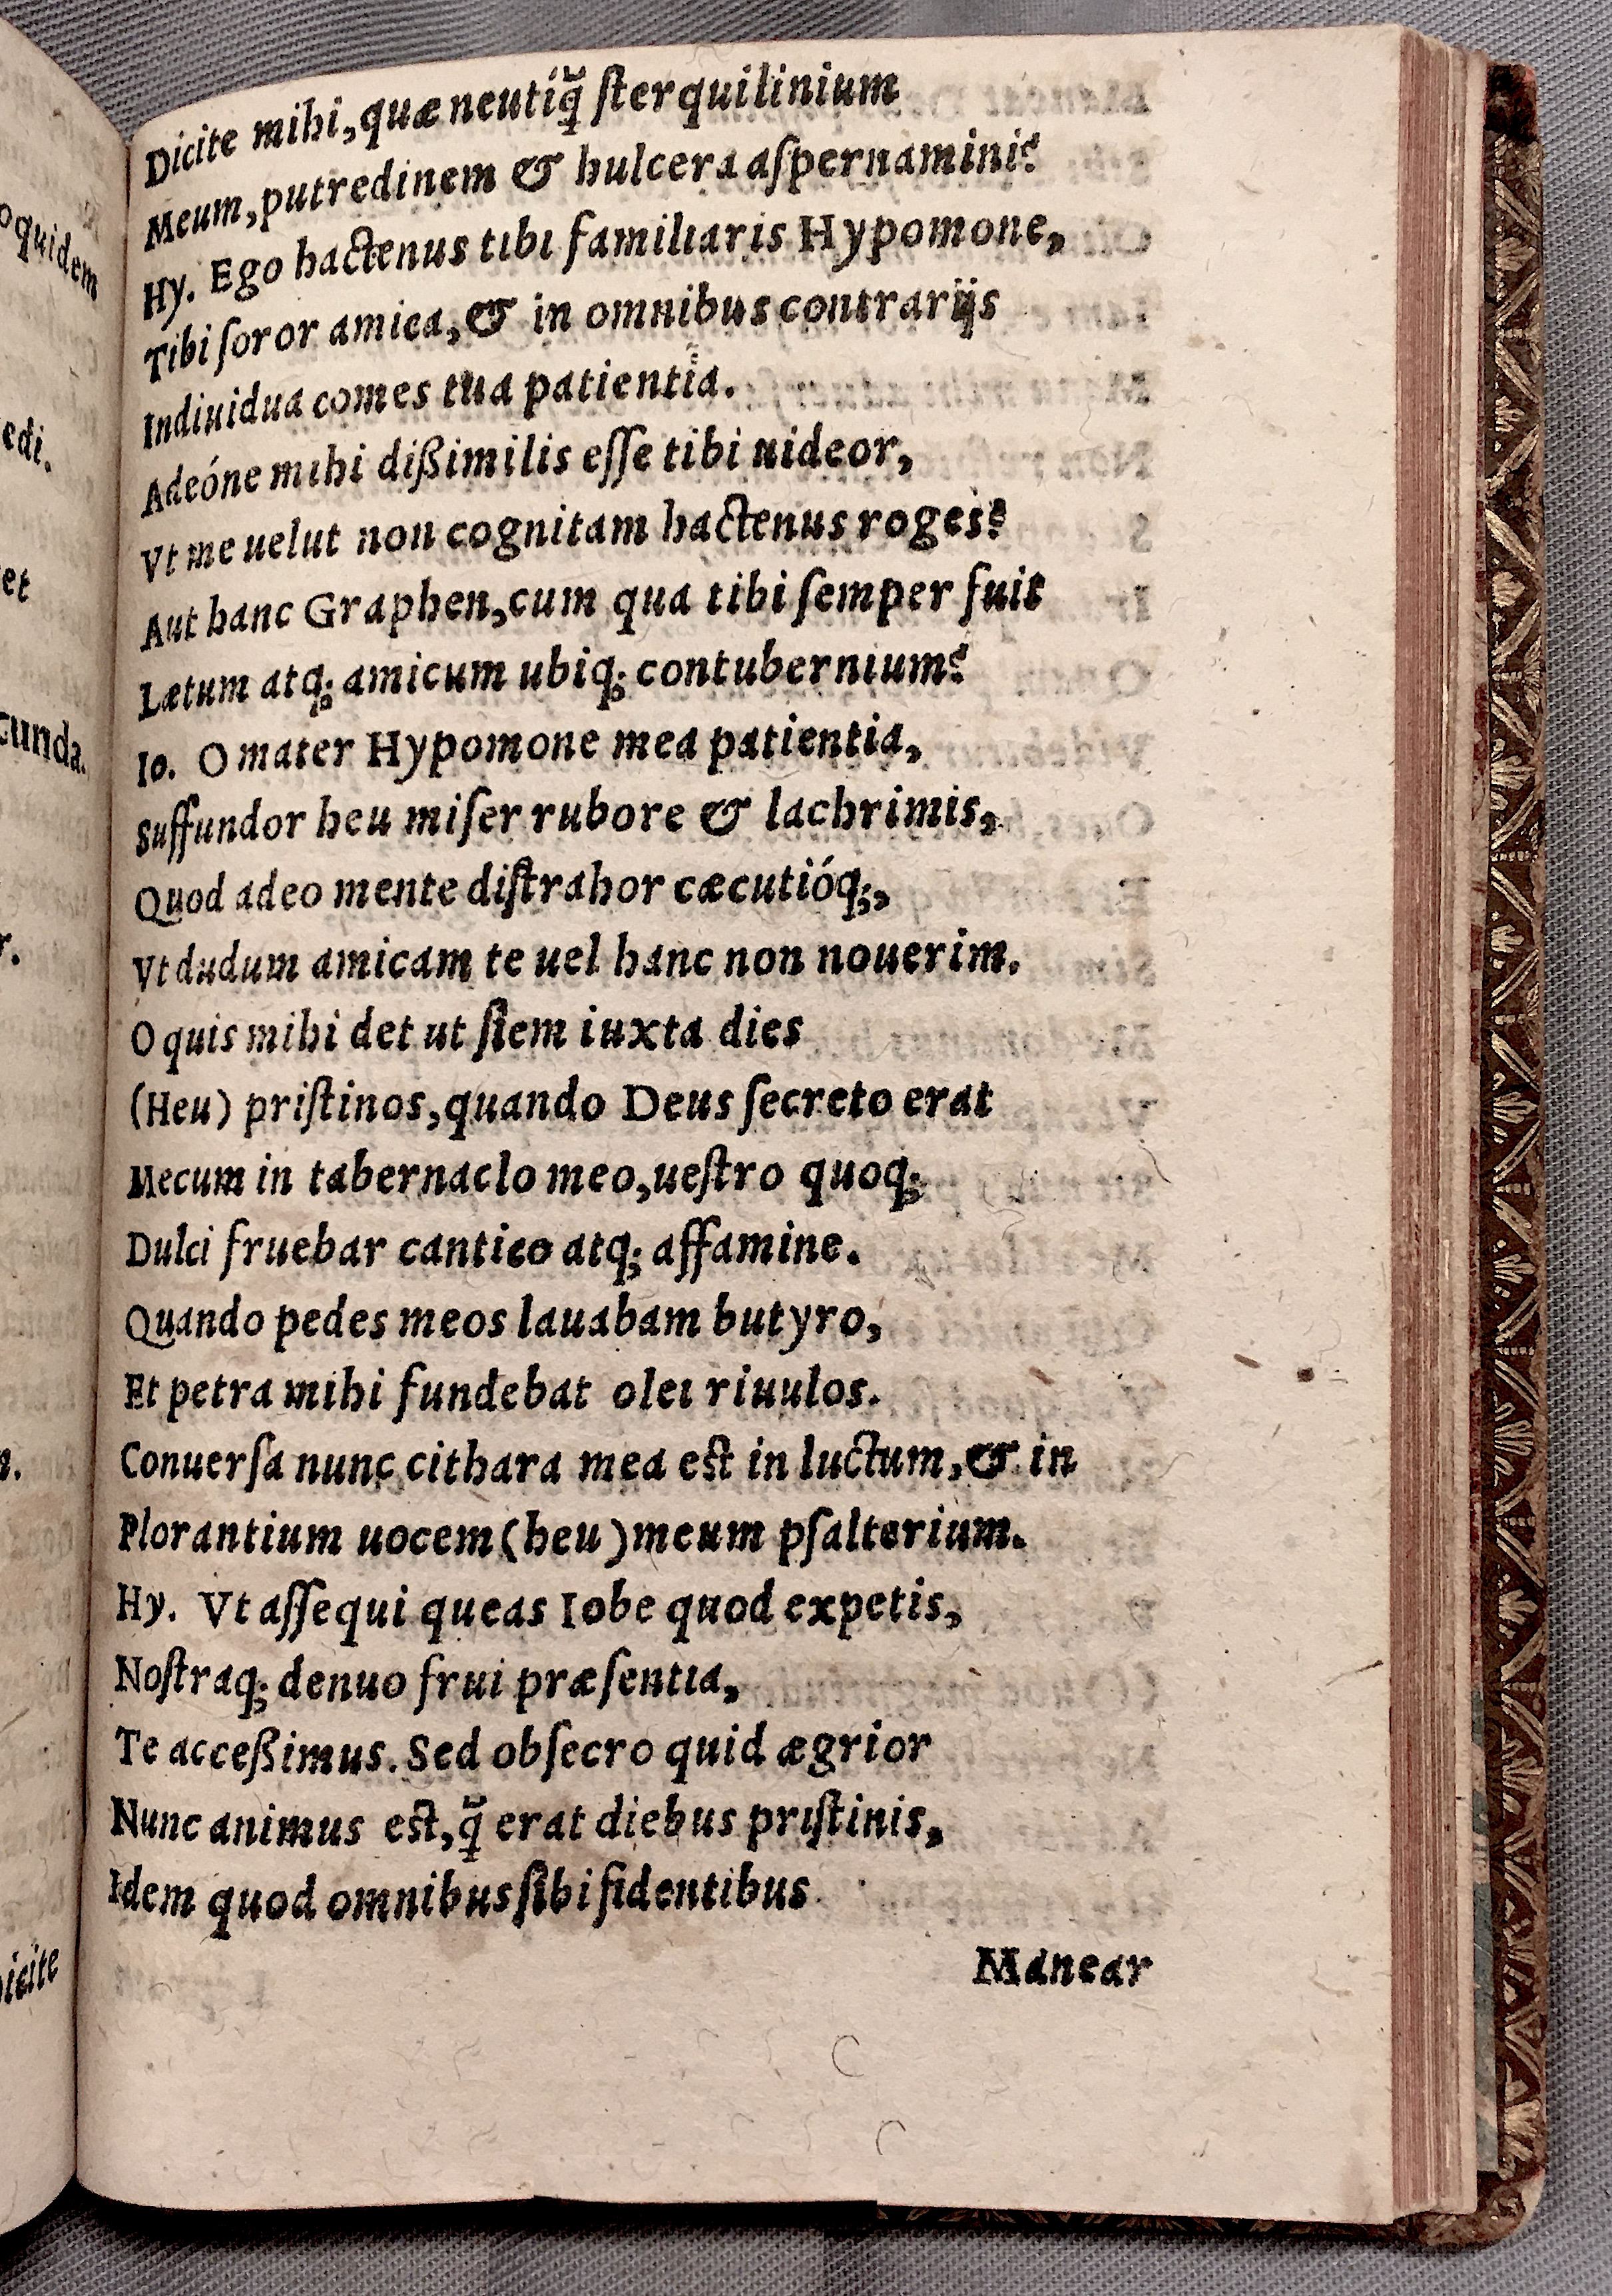 oquidem
edi.
et
cunda.
r.
icite
Dicite mihi, quæ neutiq̃ ſterquilinium
Meum, putredinem & hulcera aſpernamini?
Hy. Ego hactenus tibi familiaris Hypomone,
Tibi ſoror amica, & in omnibus contrarijs
Indiuidua comes tua patientia.
Adeóne mihi dißimilis eſſe tibi uideor,
Vt me uelut non cognitam hactenus roges?
Aut hanc Graphen, cum qua tibi ſemper fuit
Lætum atq; amicum ubiq; contubernium?
Io. O mater Hypomone mea patientia,
Suffundor heu miſer rubore & lachrimis,
Quod adeo mente diſtrahor cæcutióq;,
Vt dudum amicam te uel hanc non nouerim.
O quis mihi det ut ſiem iuxta dies
(Heu) priſtinos, quando Deus ſecreto erat
Mecum in tabernaclo meo, ueſtro quoq;
Dulci fruebar cantico atq; affamine.
Quando pedes meos lauabam butyro,
Et petra mihi fundebat olei riuulos.
Conuerſa nunc cithara mea eſt in luctum, & in
Plorantium uocem (heu) meum pſalterium.
Hy. Vt aſſequi queas Iobe quod expetis,
Noſtraq; denuo frui præſentia,
Te acceßimus. Sed obſecro quid ægrior
Nunc animus eſt, q̃ erat diebus priſtinis,
Idem quod omnibus ſibi fidentibus
Manear